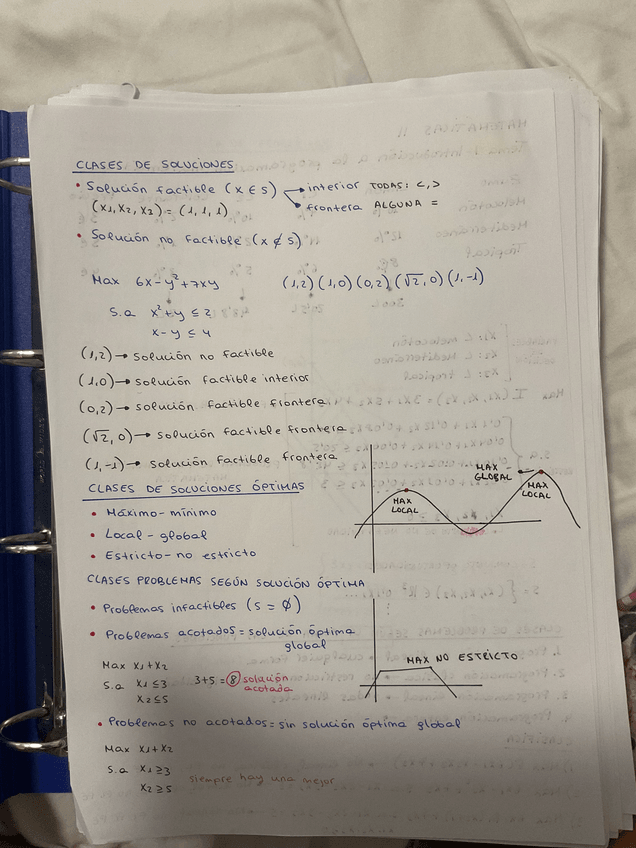 CLASES DE SOLUCIONES
• Solución factible (x ∈ S) → interior TODAS: <, >
→ frontera ALGUNA =
(x1, x2, x3) = (1, 1, 1)
• Solución no factible (x ∉ S)
Max 6x - y² + 7xy (1,2) (1,0) (0,2) (√2, 0) (1,-1)
S.a x² + y ≤ 2
x - y ≤ 4
(1,2) → solución no factible
(1,0) → solución factible interior
(0,2) → solución factible frontera
(√2, 0) → solución factible frontera
(1,-1) → solución factible frontera
CLASES DE SOLUCIONES ÓPTIMAS
• Máximo - mínimo
• Local - global
• Estricto - no estricto
MAX LOCAL
MAX GLOBAL
MAX LOCAL
CLASES PROBLEMAS SEGÚN SOLUCIÓN ÓPTIMA
• Problemas infactibles (S = ∅)
• Problemas acotados = solución óptima
global
Max x1 + x2
S.a x1 ≤ 3 3+5 = 8 solución
acotada
x2 ≤ 5
MAX NO ESTRICTO
• Problemas no acotados = sin solución óptima global
Max x1 + x2
S.a x1 ≥ 3 siempre hay una mejor
x2 ≥ 5